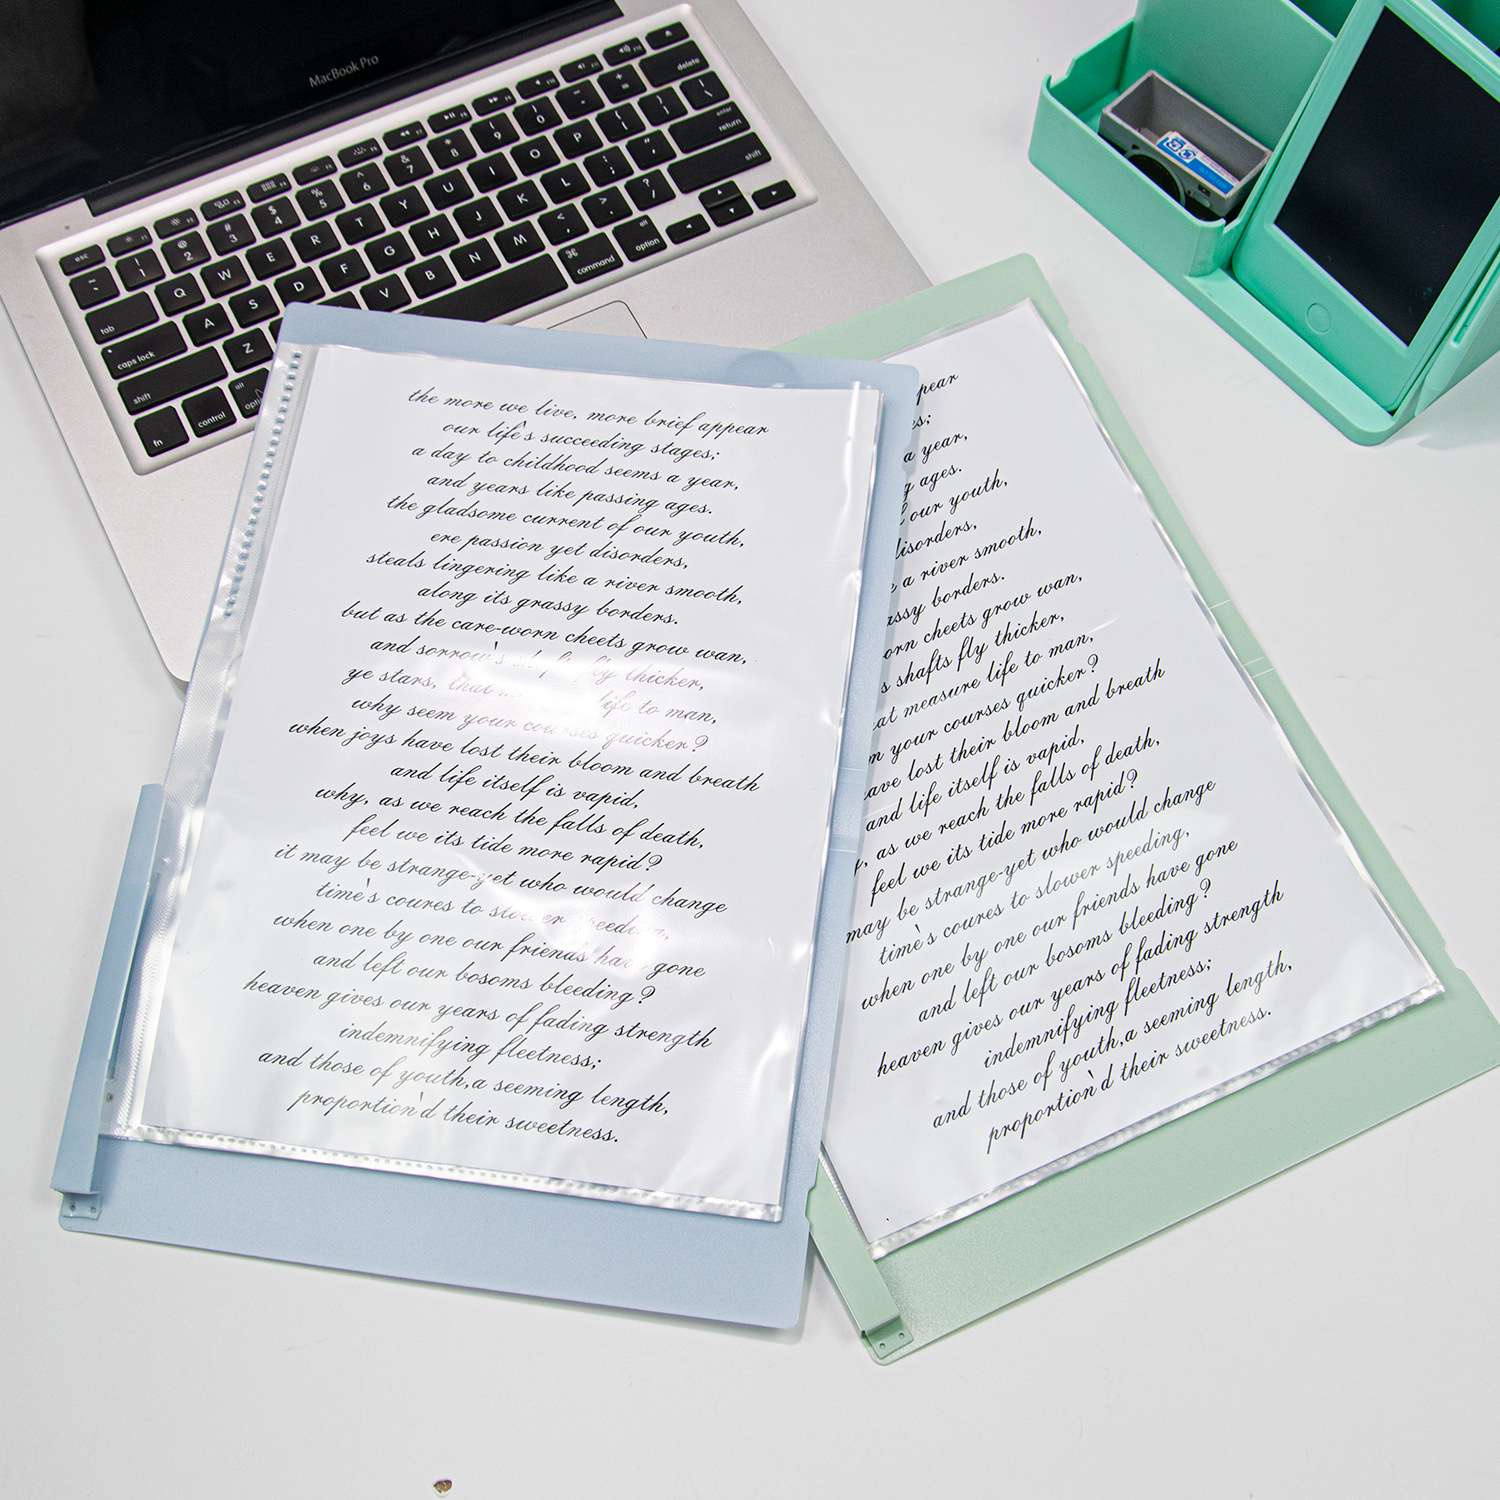 MacBook Pro
esc
delete
tab
caps lock
shift
fn
control
alt
option
command
alt
option
enter
return
shift
1 2 3 4 5 6 7 8 9 0
Q W E R T Y U I O P
A S D F G H J K L
Z V B N M
the more we live, more brief appear
our life's succeeding stages;
a day to childhood seems a year,
and years like passing ages.
the gladsome current of our youth,
ere passion yet disorders,
steals lingering like a river smooth,
along its grassy borders.
but as the care-worn cheets grow wan,
and sorrow's fly thicker,
ye stars, that life to man,
why seem your courses quicker?
when joys have lost their bloom and breath
and life itself is vapid,
why, as we reach the falls of death,
feel we its tide more rapid?
it may be strange-yet who would change
time's coures to slower speeding,
when one by one our friends have gone
and left our bosoms bleeding?
heaven gives our years of fading strength
indemnifying fleetness;
and those of youth,a seeming length,
proportion'd their sweetness.
pear
es;
a year,
g ages.
our youth,
disorders,
a river smooth,
assy borders.
orn cheets grow wan,
s shafts fly thicker,
at measure life to man,
m your courses quicker?
ave lost their bloom and breath
and life itself is vapid,
, as we reach the falls of death,
feel we its tide more rapid?
may be strange-yet who would change
time's coures to slower speeding,
when one by one our friends have gone
and left our bosoms bleeding?
heaven gives our years of fading strength
indemnifying fleetness;
and those of youth,a seeming length,
proportion'd their sweetness.